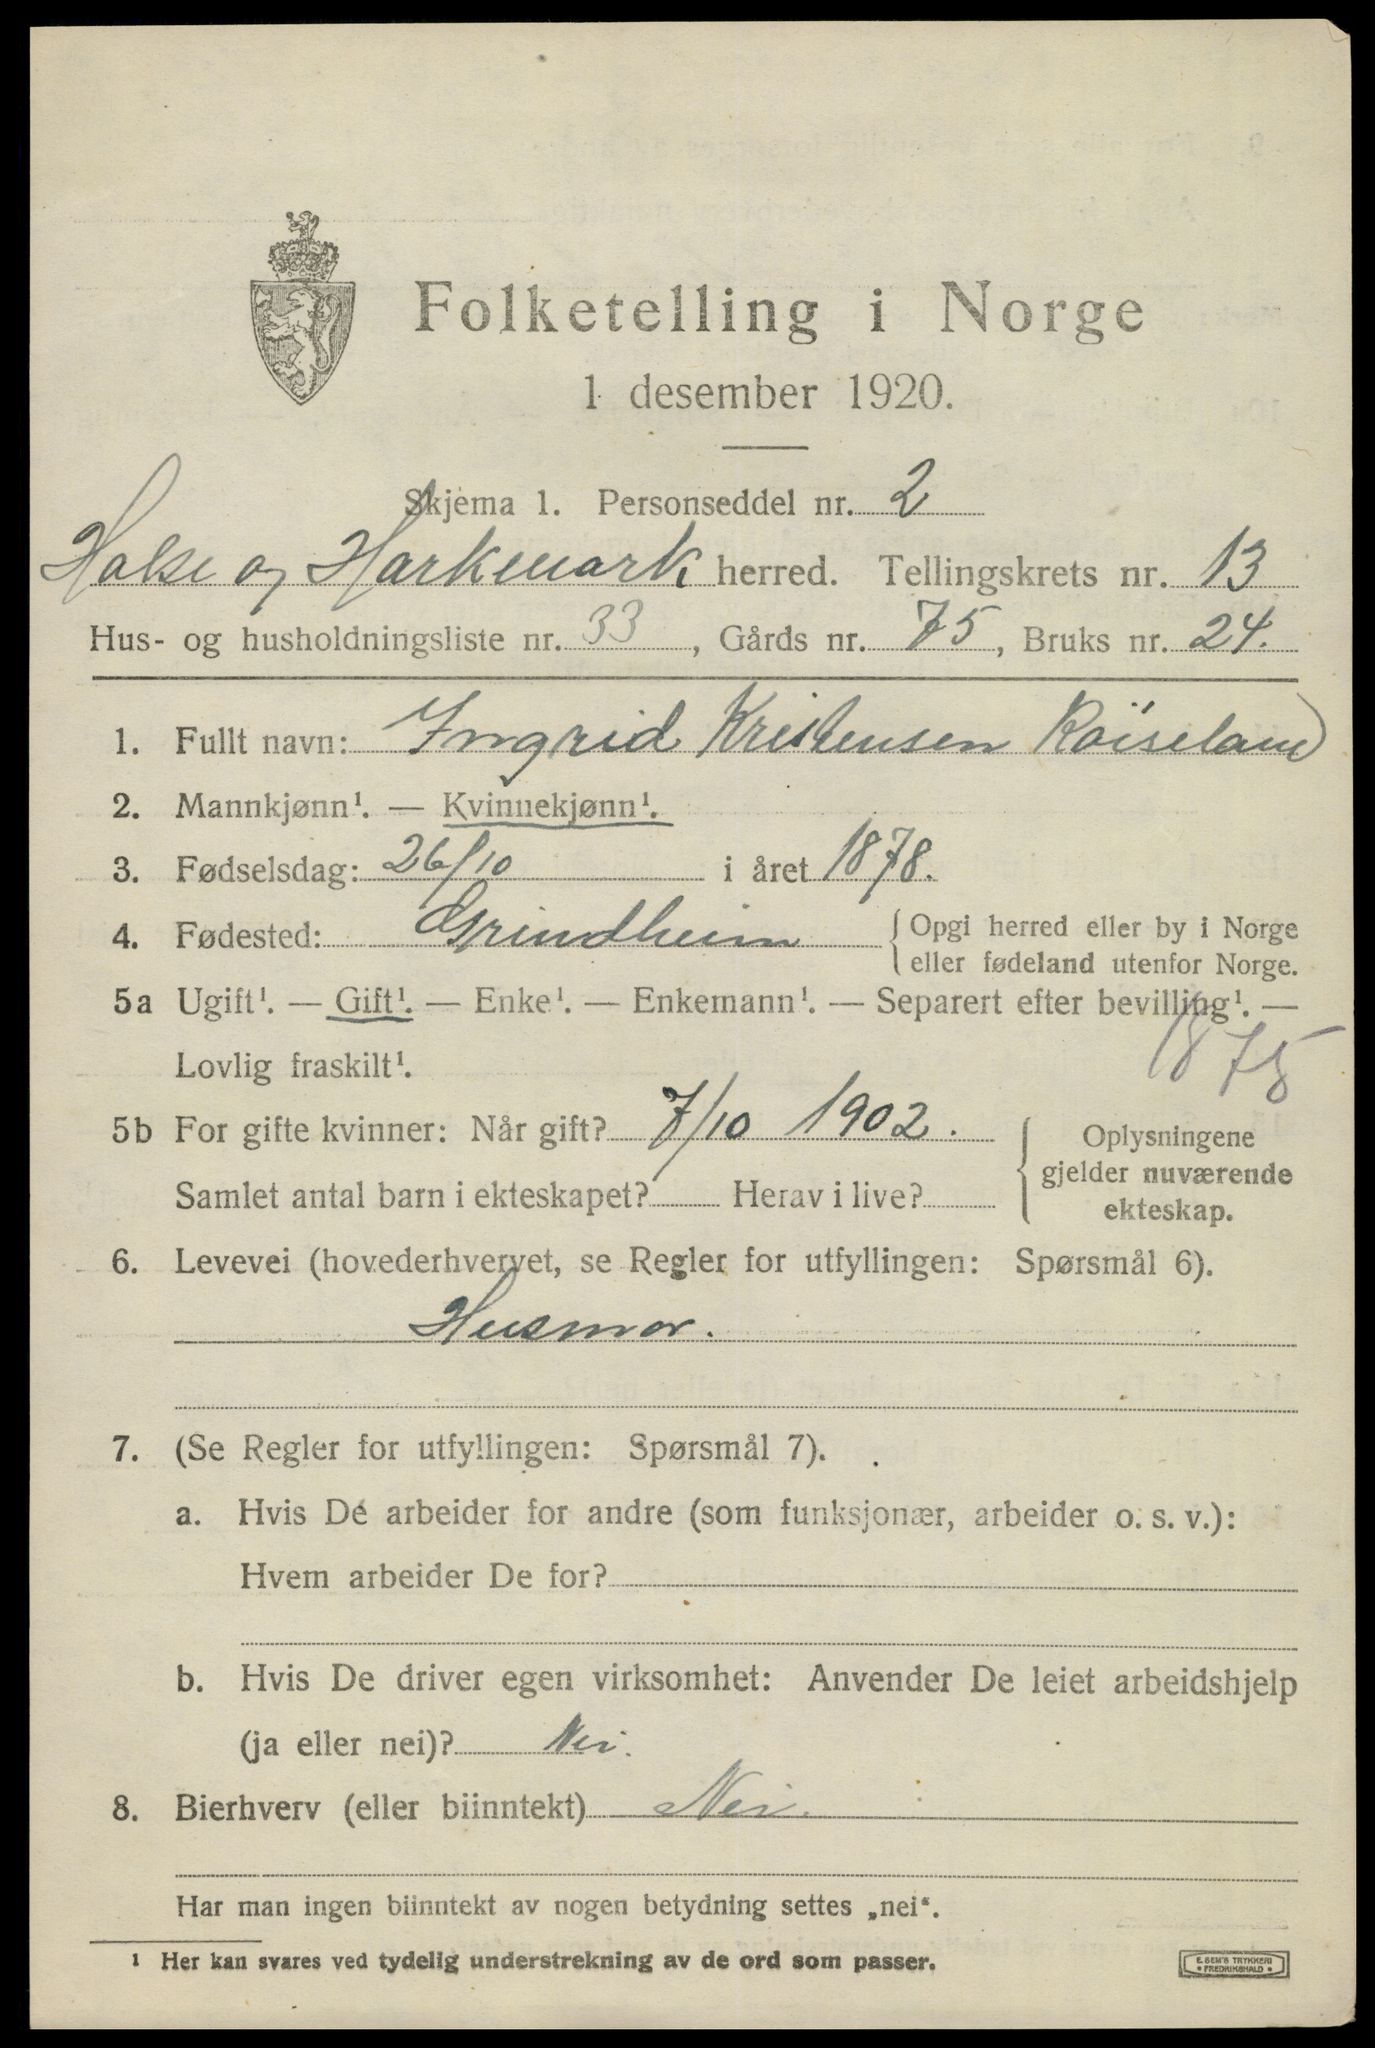 Folketelling i Norge
1 desember 1920.
Skjema 1. Personseddel nr. 2
Halse og Harkmark herred. Tellingskrets nr. 13
Hus- og husholdningsliste nr. 33, Gårds nr. 75, Bruks nr. 24.
1. Fullt navn: Ingrid Kristensen Röiseland
2. Mannkjønn¹. — Kvinnekjønn¹.
3. Fødselsdag: 26/10 i året 1878.
4. Fødested: Grindheim { Opgi herred eller by i Norge
eller fødeland utenfor Norge.
5a Ugift¹. — Gift¹. — Enke¹. — Enkemann¹. — Separert efter bevilling¹. —
Lovlig fraskilt¹.
1878
5b For gifte kvinner: Når gift? 7/10 1902.
Samlet antal barn i ekteskapet? Herav i live?
{ Oplysningene
gjelder nuværende
ekteskap.
6. Levevei (hovederhvervet, se Regler for utfyllingen: Spørsmål 6).
Husmor.
7. (Se Regler for utfyllingen: Spørsmål 7).
a. Hvis De arbeider for andre (som funksjonær, arbeider o. s. v.):
Hvem arbeider De for?
b. Hvis De driver egen virksomhet: Anvender De leiet arbeidshjelp
(ja eller nei)? Nei.
8. Bierhverv (eller biinntekt) Nei.
Har man ingen biinntekt av nogen betydning settes „nei“.
¹ Her kan svares ved tydelig understrekning av de ord som passer.
E. SEM'S TRYKKERI
• FREDRIKSHALD •